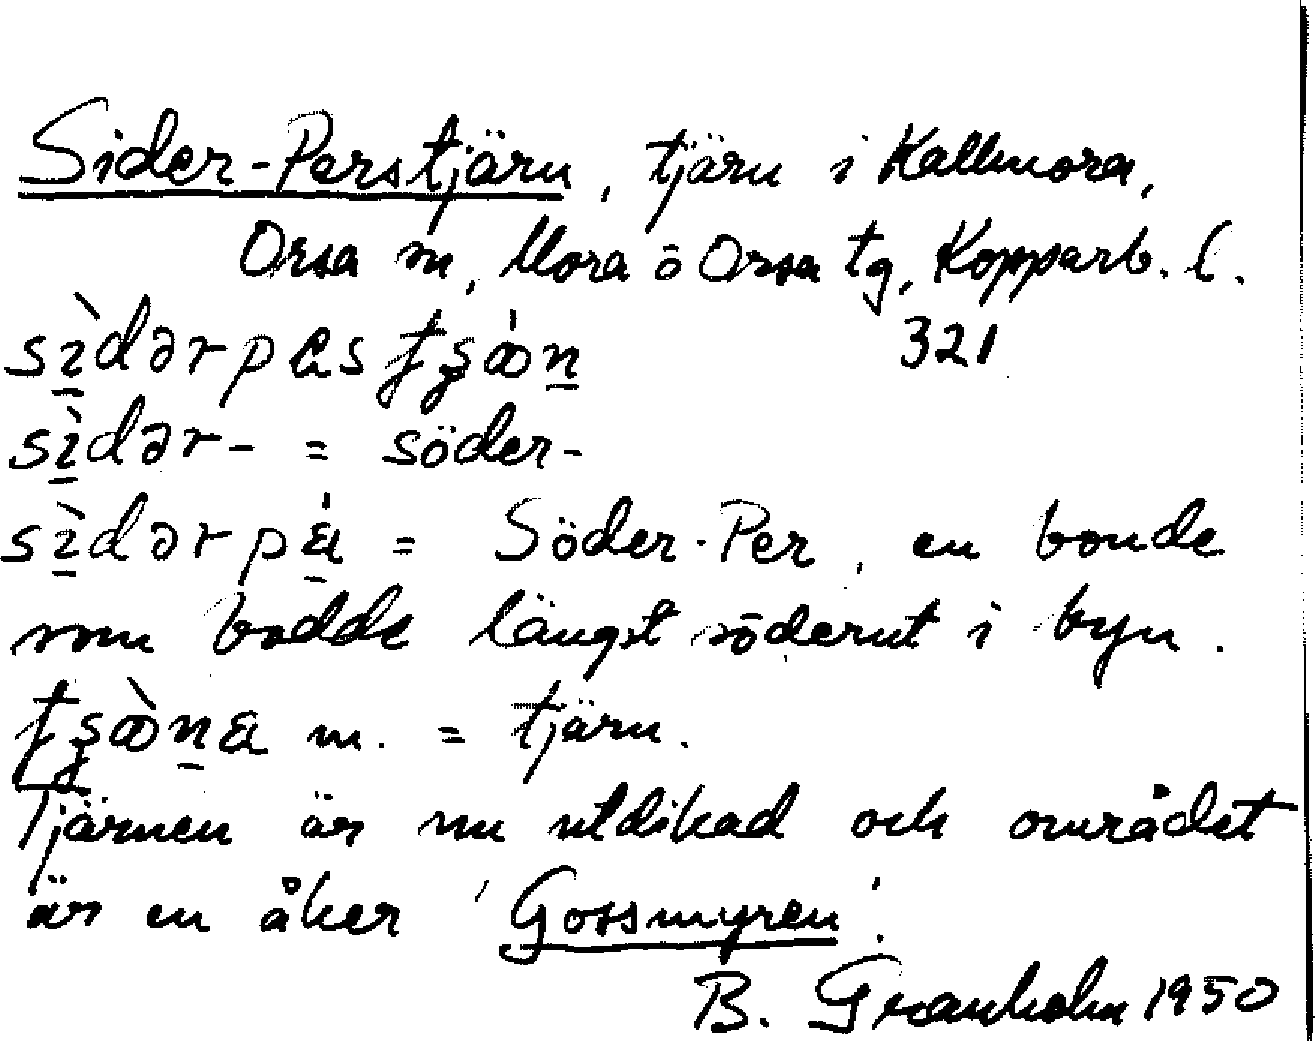 Sider-Perstjärn, tjärn i Kallmora,
Orsa sn, Mora ö Orsa tg, Kopparb. l.
321
sìdər- = söder-
= Söder-Per, en bonde
som bodde längst söderut i byn.
m. = tjärn.
Tjärnen är nu utdikad och området
är en åker 'Gossmyren'.
B. Granholm 1950